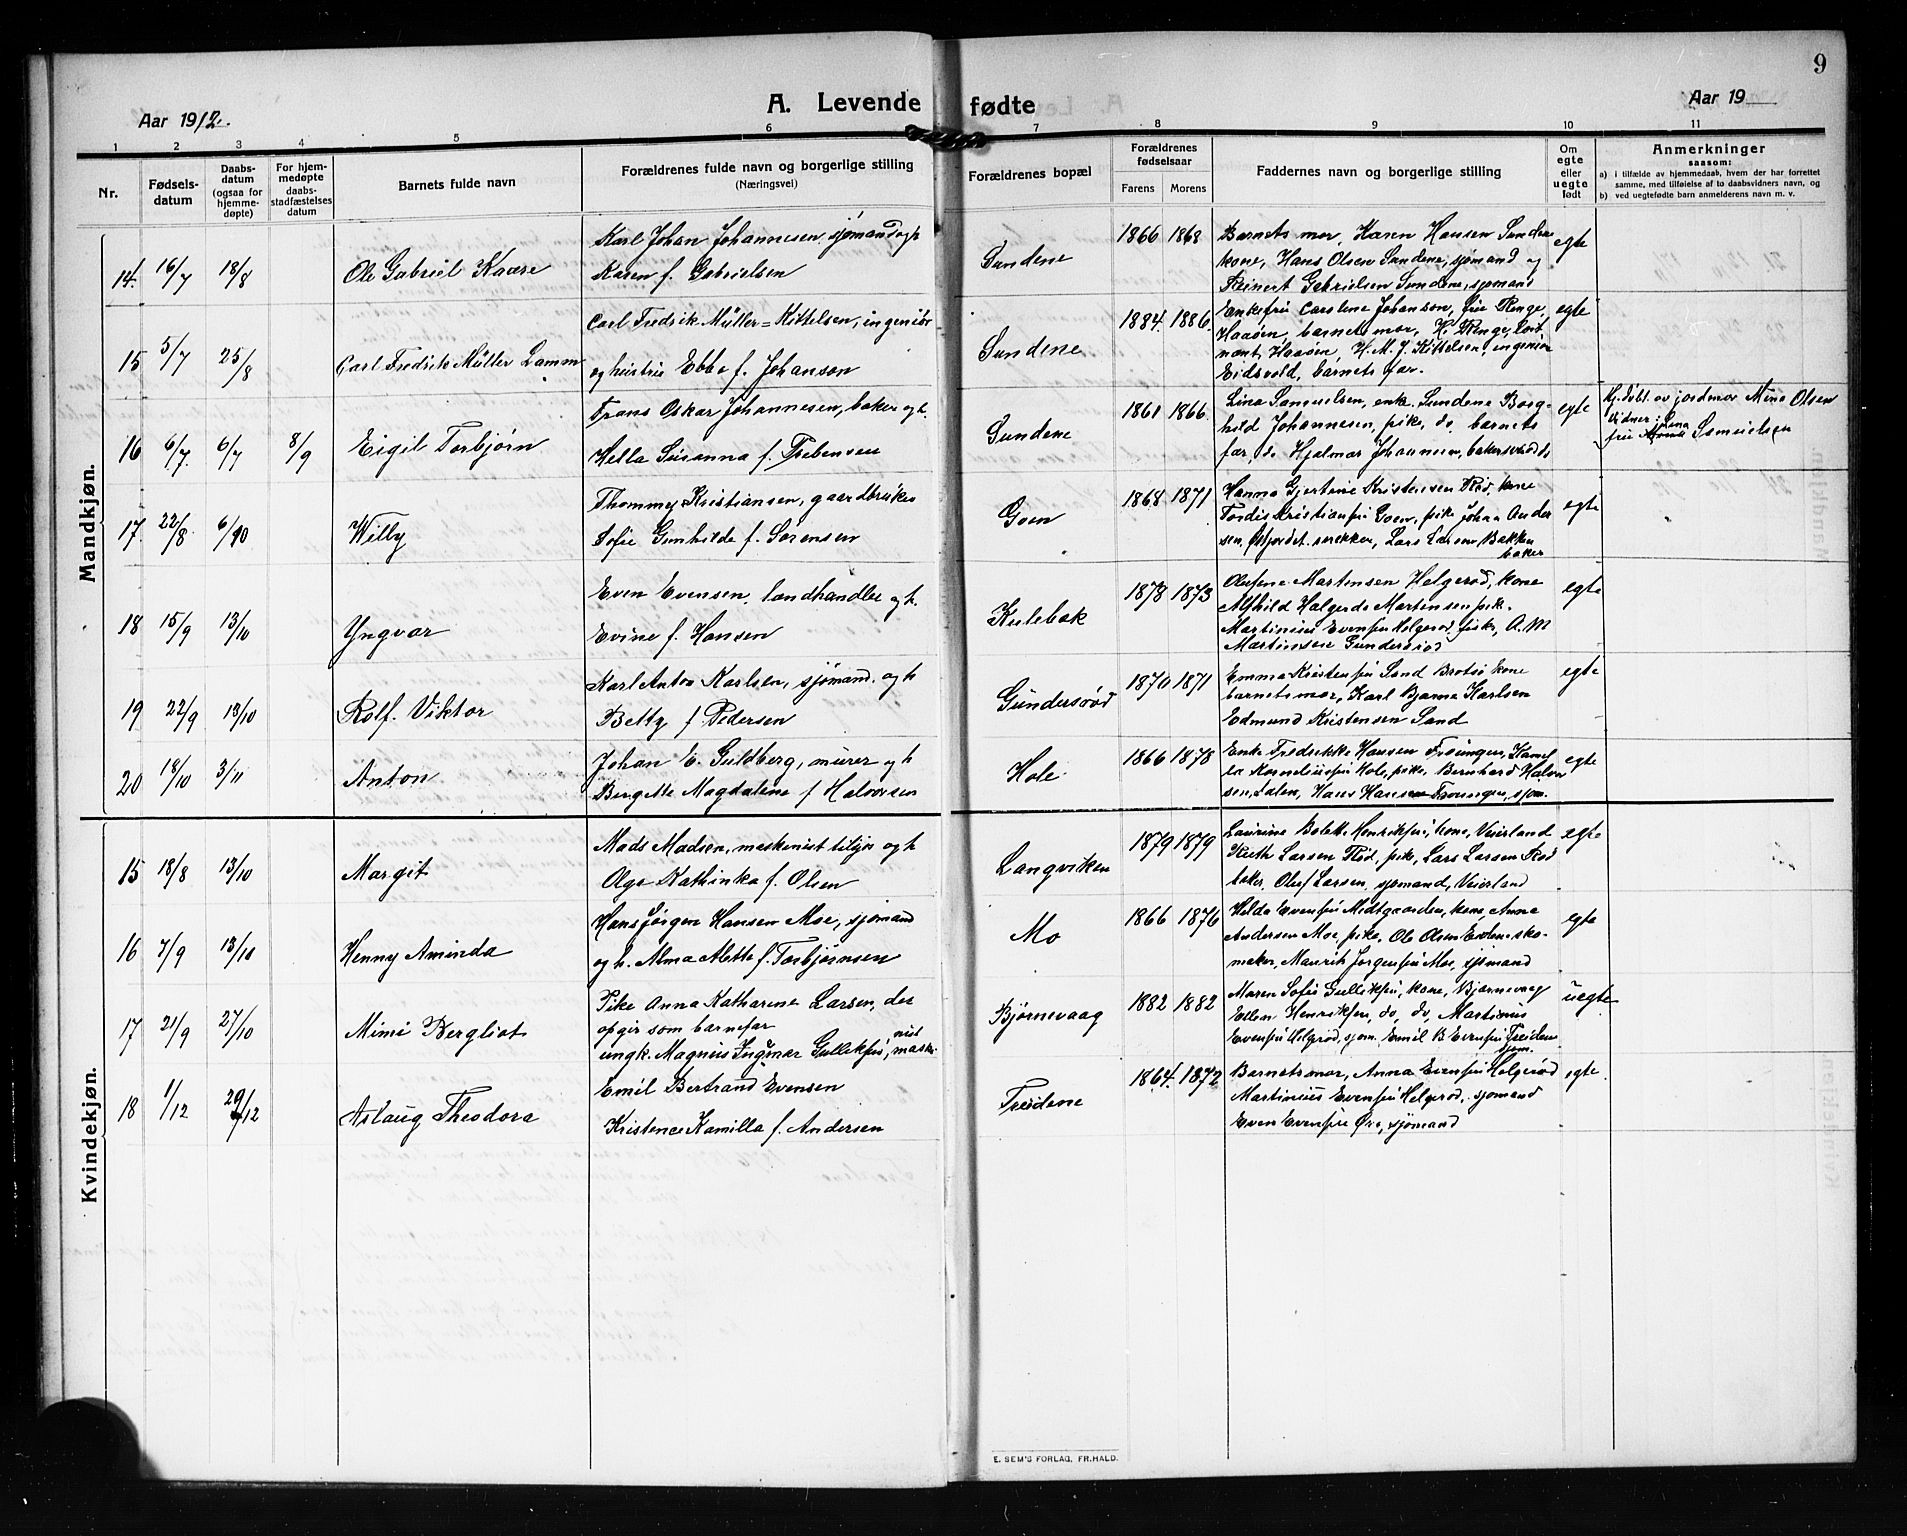 9
A. Levende fødte
Aar 1912.
Aar 19
1 2 3 4 5 6 7 8 9 10 11
Nr.
Fødsels-
datum
Daabs-
datum
(ogsaa for
hjemme-
døpte)
For hjem-
medøpte
daabs-
stadfæstelses
datum
Barnets fulde navn
Forældrenes fulde navn og borgerlige stilling
(Næringsvei)
Forældrenes bopæl
Forældrenes
fødselsaar
Farens Morens
Faddernes navn og borgerlige stilling
Om
egte
eller
uegte
født
Anmerkninger
saasom:
a) i tilfælde av hjemmedaab, hvem der har forrettet
samme, med tilføielse af to daabsvidners navn, og
b) ved uegtefødte barn anmelderens navn m. v.
Mandkjøn.
14. 16/7 18/8 Ole Gabriel Kaare
Karl Johan Johannesen, sjømand og h
Karen f. Gabrielsen
Sundene 1866 1868
Barnets mor, Karen Hansen Sundene
kone, Hans Olsen Sundene, sjømand og
Reinert Gabrielsen Sundene, sjømand
egte
15 5/7 25/8 Carl Fredrik Müller Lamm
Carl Fredrik Müller=Kittelsen, ingeniør
og hustru Ebba f. Johanson
Sundene 1884. 1886.
Enkefru Carolene Johanson, fru Ringe,
Haaøen, barnets mor, H. Ringe, løit
nant, Haaøen, H. M. J. Kittelsen, ingeniør
Eidsvold, barnets far.
egte
16 6/7. 6/7 8/9 Eigil Torbjørn
Frans Oskar Johannesen, baker og h.
Hella Susanna f. Trebensen
Sundene 1861 1866.
Lina Samuelsen, enk. Sundene Borg-
hild Johannesen, pike, do, barnets
far, do Hjalmar Johannesen, bakersvend do
egte
Hj.døbt. av jordmor Mina Olsen
Vidner: Lina
fru Samuelsen
17. 22/8 6/10 Willy
Thommey Kristiansen, gaardbruker
Sofie Gunhilde f. Sørensen
Goen 1868 1871
Hanna Gjertine Kristensen Rød, kone
Tordis Kristiansen Goen, pike Johan Ander
sen, Østjordet. snekker, Lars Larsen Bakken
baker
egte
18 15/9 13/10 Yngvar
Even Evensen, landhandler og h.
Evine f. Hansen
Kulebak 1878 1873
Olufine Martinsen Helgerød, kone
Alfhild Halgerda Martinsen pik.
Martinius Evensen Helgerød, fisker, A. M
Martinsen Gundersrød
egte
19 22/9 13/10 Rolf. Viktor
Karl Anton Karlsen, sjømand. og h
Betty f Pedersen
Gundersrød 1870 1871
Emma Kristensen Sand Brøtsø kone
barnets mor, Karl Bjarne Karlsen
Edmund Kristensen Sand
egte
20 18/10 3/11 Anton
Johan E. Guldberg, murer og h
Bergette Magdalene f Halvorsen
Hole. 1866 1878
Enke Fredrikke Hansen
Hole, pike, Bernhard Halvor
sen, Dalen, Hans Hansen sjøm.
egte
Kvindekjøn.
15 18/8 13/10 Margit
Mads Madsen, maskinist tilsjøs og h
Olga Kathinka f. Olsen
Langviken 1879 1879
Laurine Bolette Henriksen, kone, Veierland
Ruth Larsen Rød, pike, Lars Larsen Rød
baker, Oluf Larsen, sjømand, Veierland
egte
16 7/9 13/10 Henny Aminda
Hans Jørgen Hansen Moe, sjømand
og h. Alma Alette f. Torbjørnsen
Mo 1866 1876
Helda Evensen Midtgaarden, kone, Anna
Andersen Moe pike, Ole Olsen Eidene sko-
maker, Maurik Jørgensen Moe, sjømand
egte
17 21/9 27/10 Mimi Bergliot
Pike Anna Katharine Larsen, der
opgir som barnefar
ungk. Magnus Ingmar Gulliksen, maski
nist
Bjørnevaag 1882 1882
Maren Sofie Gulliksen, kone, Bjørnevaag
Ellen Henriksen, do, do, Martinius
Evensen Helgerød, sjøm. Emil B Evensen Treidene
sjøm.
uegte
18 1/12 29/12 Aslaug Theodora
Emil Bertrand Evensen
Kristence Kamilla f. Andersen
Treidene 1864. 1872
Barnets mor, Anna Evensen Helgerød
Martinius Evensen Helgerød, sjømand
Even Evensen Øra, sjømand
egte.
E. SEM'S FORLAG, FR.HALD.